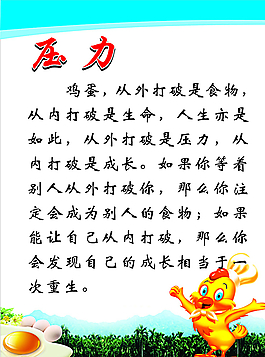 压力
鸡蛋，从外打破是食物，
从内打破是生命，人生亦是
如此，从外打破是压力，从
内打破是成长。如果你等着
别人从外打破你，那么你注
定会成为别人的食物；如果
能让自己从内打破，那么你
会发现自己的成长相当于一
次重生。